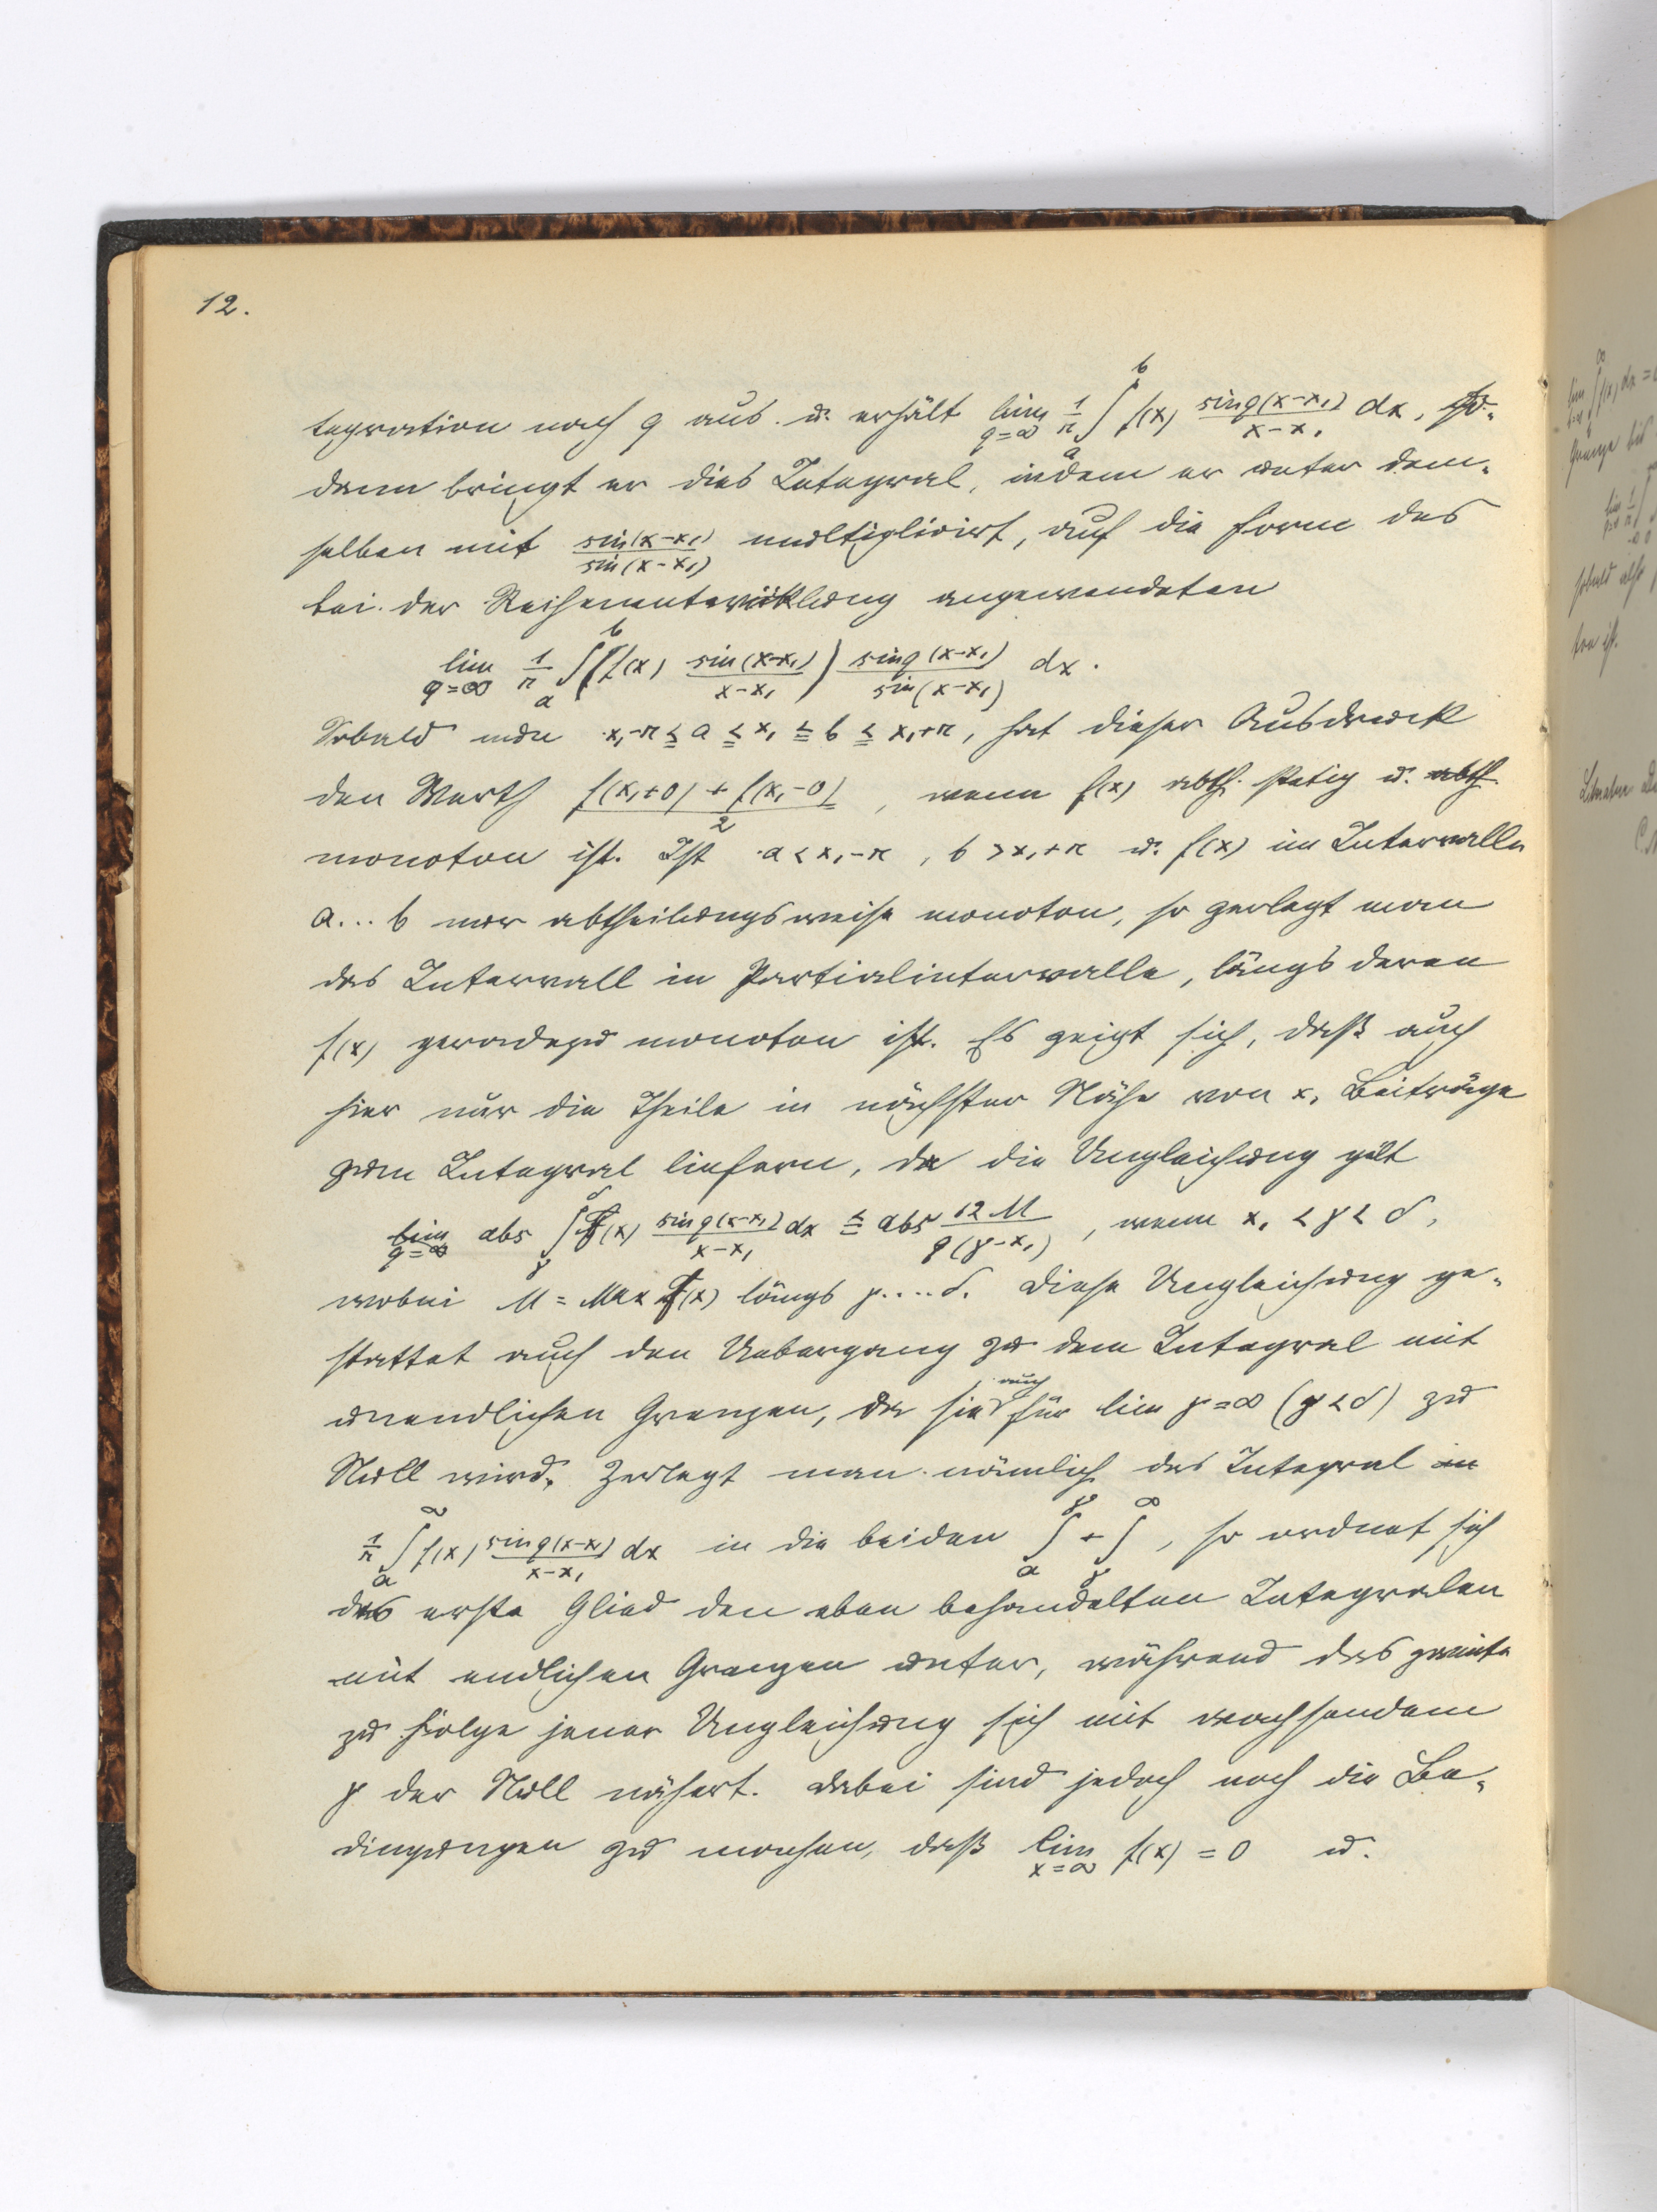 12.
tegration nach q aus u. erhält lim_{q=∞} 1/π ∫_a^b f(x) sin q(x-x₁)/(x-x₁) dx, so-
dann bringt er dies Integral, indem er unter dem-
selben mit sin(x-x₁)/sin(x-x₁) multiplicirt, auf die Form des
bei der Reihenentwicklung angewendeten
lim_{q=∞} 1/π ∫_a^b (f(x) sin(x-x₁)/(x-x₁)) sin q(x-x₁)/sin(x-x₁) dx.
Sobald nun x₁-π ≦ a ≦ x₁ ≦ b ≦ x₁+π, hat dieser Ausdruck
den Werth (f(x₁+0) + f(x₁-0))/2, wenn f(x) abth. stetig u. abth.
monoton ist. Ist a < x₁-π, b > x₁+π u. f(x) im Intervalle
a...b nur abtheilungsweise monoton, so zerlegt man
das Intervall in Partialintervalle, längs deren
f(x) geradezu monoton ist. Es zeigt sich, daß auch
hier nur die Theile in nächster Nähe von x₁ Beiträge
zum Integral liefern, da die Ungleichung gilt
lim_{q=∞} abs ∫_γ^δ f(x) sin q(x-x₁)/(x-x₁) dx ≦ abs 12 M/(q(γ-x₁)), wenn x₁ < γ < δ,
wobei M = Max f(x) längs γ....δ. Diese Ungleichung ge-
stattet auch den Uebergang zu dem Integral mit
unendlichen Grenzen, da sie auch für lim γ=∞ (γ<δ) zu
Null wird. Zerlegt man nämlich das Integral in
1/π ∫_a^∞ f(x) sin q(x-x₁)/(x-x₁) dx in die beiden ∫_a^γ + ∫_γ^∞, so ordnet sich
das erste Glied den eben behandelten Integralen
mit endlichen Grenzen unter, während das zweite
zu Folge jener Ungleichung sich mit wachsendem
γ der Null nähert. Dabei sind jedoch noch die Be-
dingungen zu machen, daß lim_{x=∞} f(x) = 0 u.